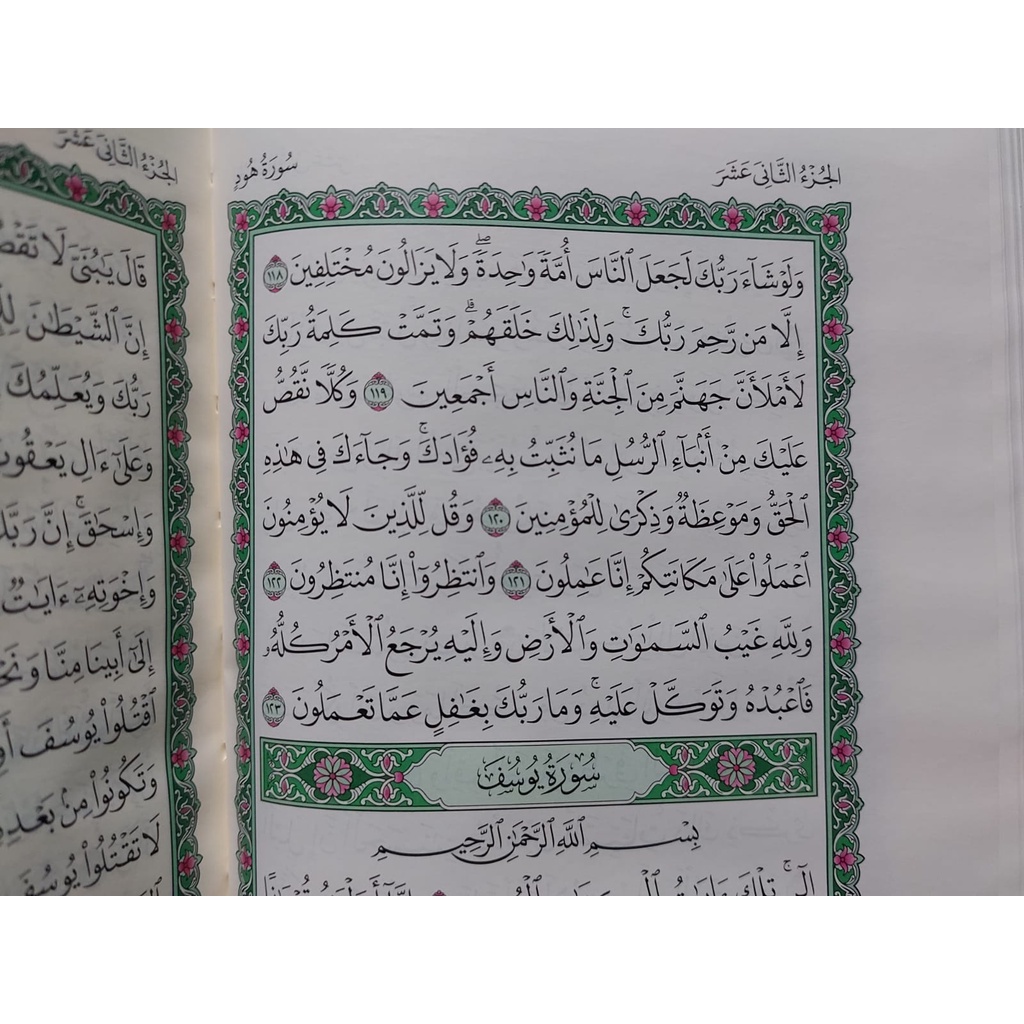 الجُزْءُ الثَّانِيَ عَشَرَ
سُورَةُ هُودٍ
وَلَوْ شَآءَ رَبُّكَ لَجَعَلَ ٱلنَّاسَ أُمَّةً وَٰحِدَةًۖ وَلَا يَزَالُونَ مُخْتَلِفِينَ ١١٨
إِلَّا مَن رَّحِمَ رَبُّكَۚ وَلِذَٰلِكَ خَلَقَهُمْۗ وَتَمَّتْ كَلِمَةُ رَبِّكَ
لَأَمْلَأَنَّ جَهَنَّمَ مِنَ ٱلْجِنَّةِ وَٱلنَّاسِ أَجْمَعِينَ ١١٩ وَكُلًّا نَّقُصُّ
عَلَيْكَ مِنْ أَنۢبَآءِ ٱلرُّسُلِ مَا نُثَبِّتُ بِهِۦ فُؤَادَكَۚ وَجَآءَكَ فِى هَٰذِهِ
ٱلْحَقُّ وَمَوْعِظَةٌ وَذِكْرَىٰ لِلْمُؤْمِنِينَ ١٢٠ وَقُل لِّلَّذِينَ لَا يُؤْمِنُونَ
ٱعْمَلُوا۟ عَلَىٰ مَكَانَتِكُمْ إِنَّا عَٰمِلُونَ ١٢١ وَٱنتَظِرُوٓا۟ إِنَّا مُنتَظِرُونَ ١٢٢
وَلِلَّهِ غَيْبُ ٱلسَّمَٰوَٰتِ وَٱلْأَرْضِ وَإِلَيْهِ يُرْجَعُ ٱلْأَمْرُ كُلُّهُۥ
فَٱعْبُدْهُ وَتَوَكَّلْ عَلَيْهِۚ وَمَا رَبُّكَ بِغَٰفِلٍ عَمَّا تَعْمَلُونَ ١٢٣
سُورَةُ يُوسُفَ
بِسْمِ ٱللَّهِ ٱلرَّحْمَٰنِ ٱلرَّحِيمِ
الجُزْءُ الثَّانِيَ عَشَرَ
قَالَ يَٰبُنَىَّ لَا
إِنَّ ٱلشَّيْطَٰنَ
رَبُّكَ وَيُعَلِّمُكَ
وَعَلَىٰٓ ءَالِ
وَإِسْحَٰقَۚ إِنَّ
وَإِخْوَتِهِۦٓ ءَايَٰتٌ
إِلَىٰٓ أَبِينَا مِنَّا
ٱقْتُلُوا۟ يُوسُفَ
وَتَكُونُوا۟ مِنۢ
لَا تَقْتُلُوا۟ يُوسُفَ